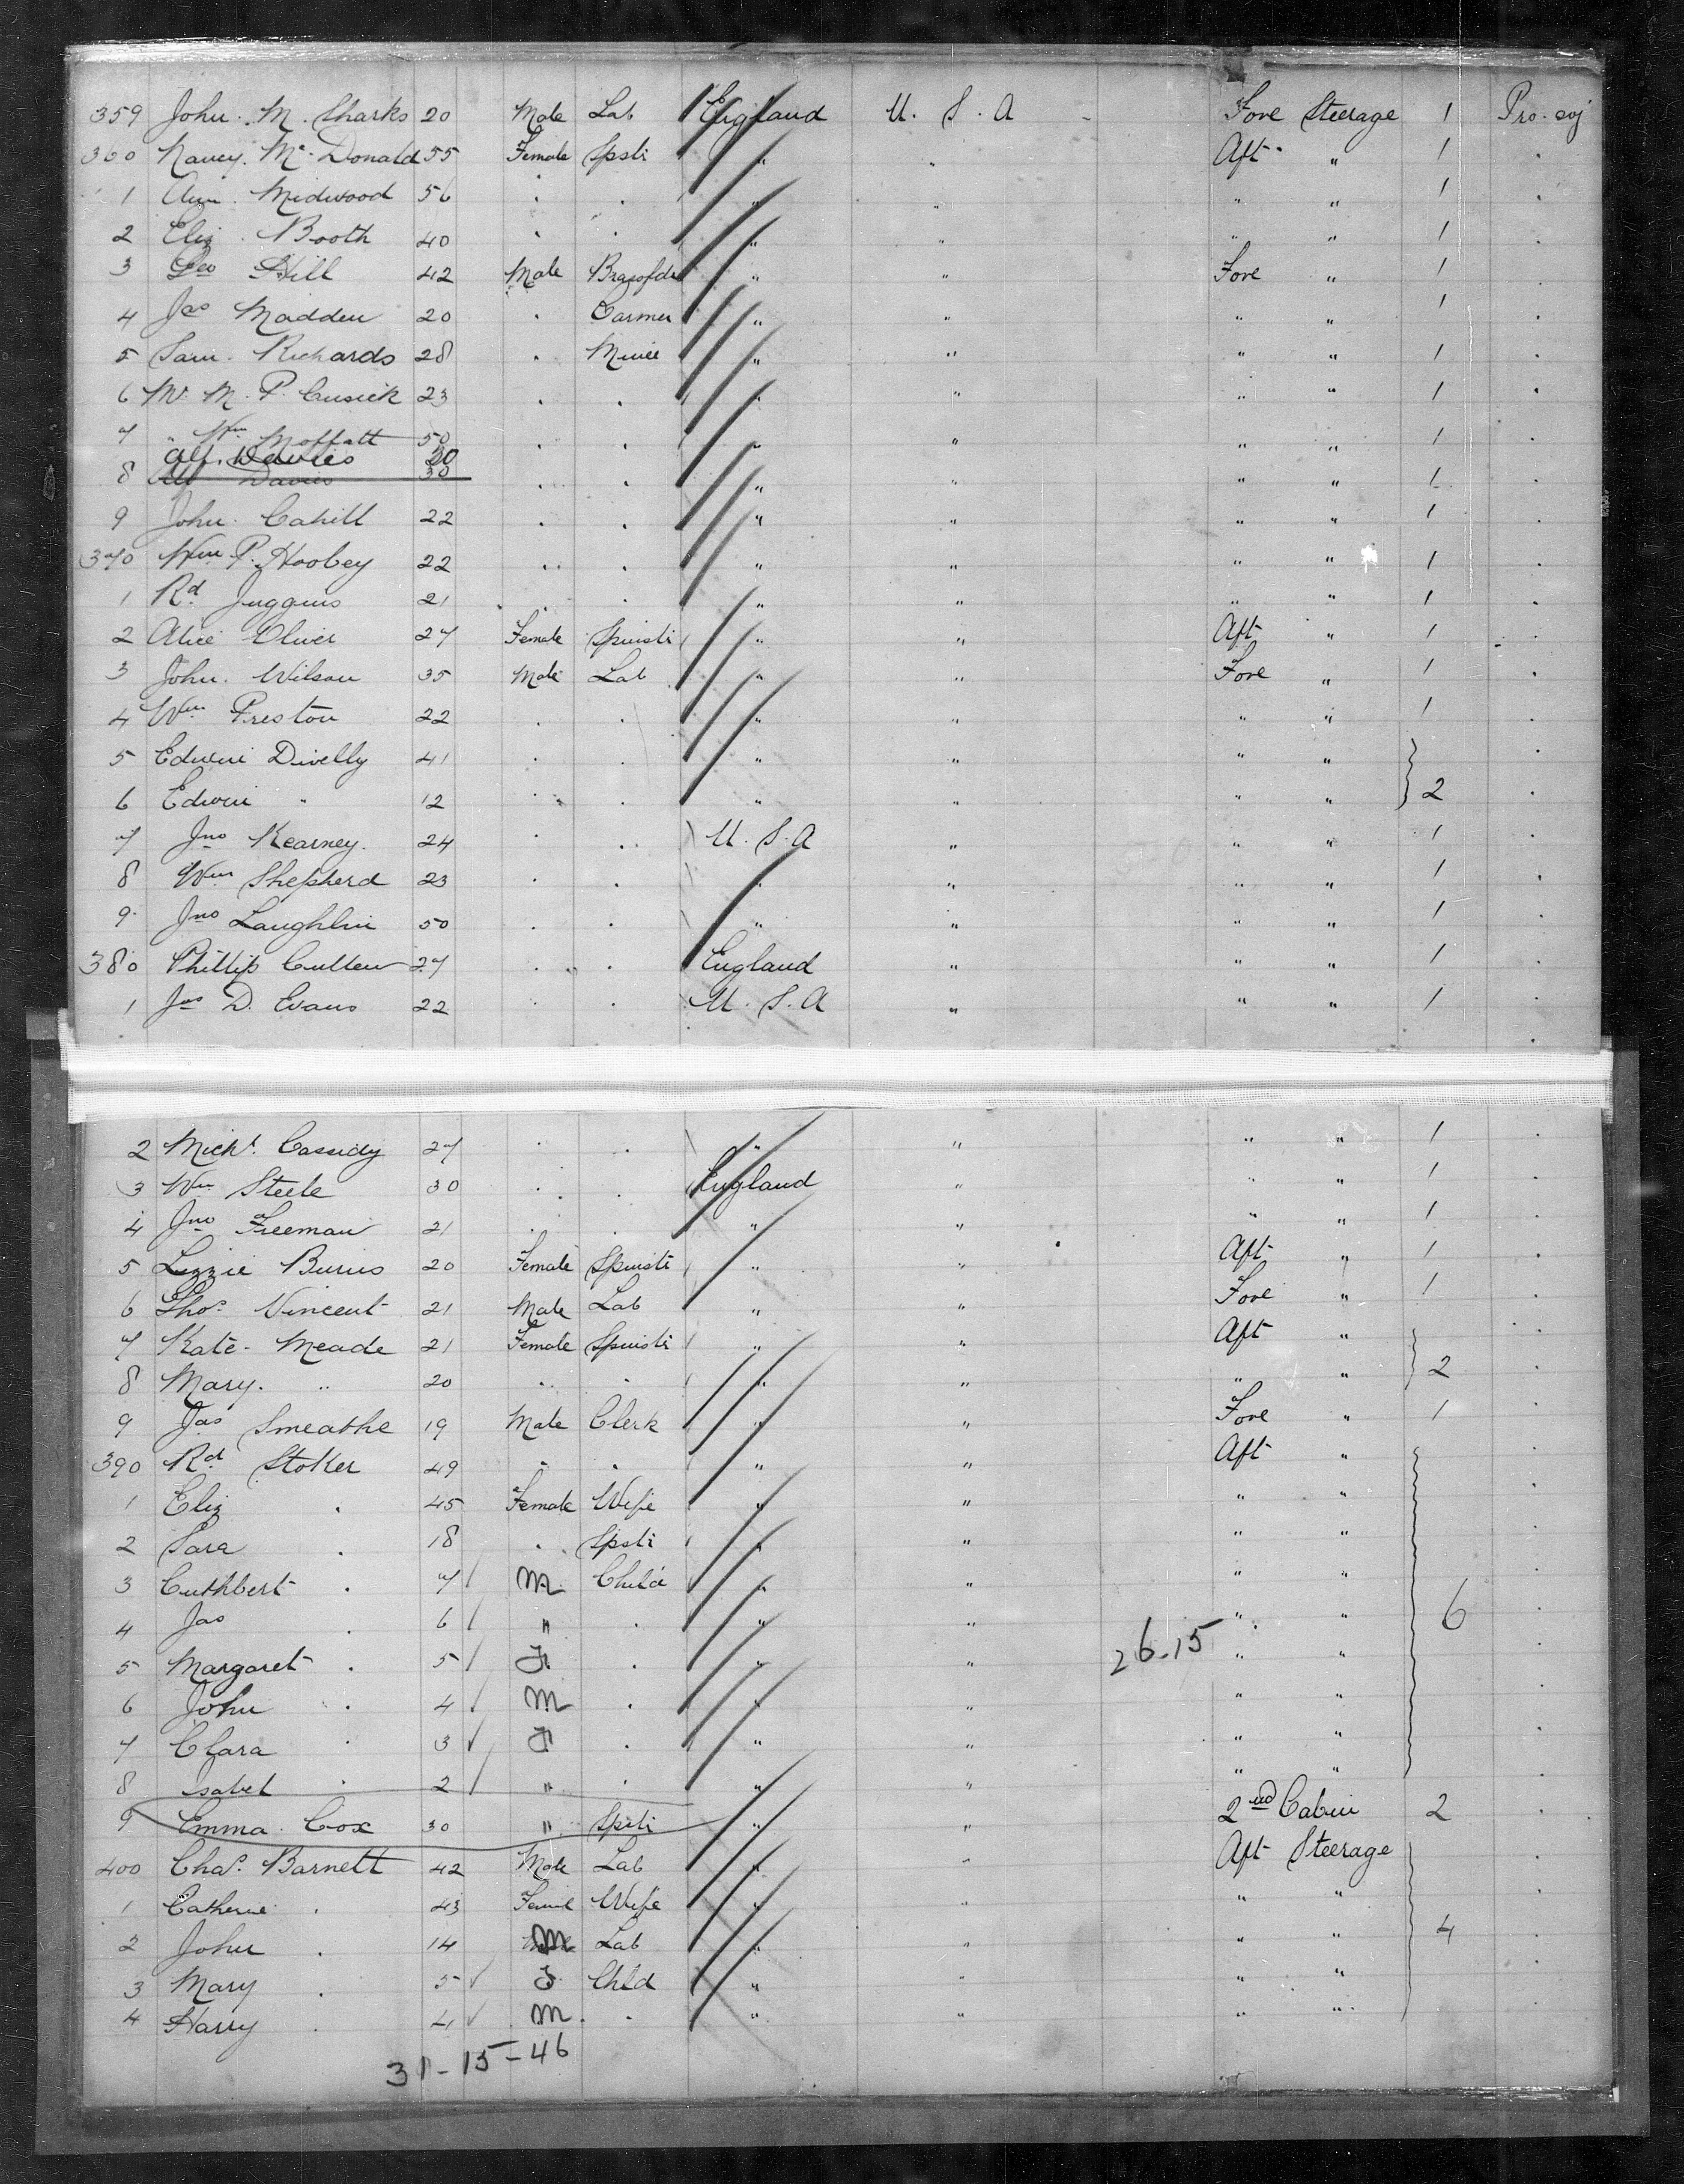 359 John. M. Sharks 20 Male Lab England U. S. A Fore Steerage 1
360 Nancy. Mc Donald 55 Female Spstr " " Aft " 1
1 Ann. Midwood 56 " " " " " " 1
2 Eliz. Booth 40 " " " " " " 1
3 Geo Hill 42 Male " " Fore " 1
4 Jas Madden 20 " " " " " 1
5 Sam. Richards 28 " Miner " " " " 1
6 M. P. Cusick 23 " " " " " " 1
7 " Wm Moffatt 50 " " " " " " 1
Alf. Davies 30
8 Alf Davies 30 " " " " " " 1
9 John. Cahill 22 " " " " " " 1
370 Wm P. Hoobey 22 " " " " " " 1
1 Rd. Juggins 21 " " " " " " 1
2 Alice Oliver 27 Female Spinstr " " Aft " 1
3 John. Wilson 35 Male Lab " " Fore " 1
4 Wm Preston 22 " " " " " " 1
5 Edwin Divelly 41 " " " " " "
6 Edwin " 12 " " " " " " 2
7 Jno Kearney. 24 " " U. S. A " " " 1
8 Wm Shepherd 23 " " " " " " 1
9 Jno Laughlin 50 " " " " " " 1
380 Phillip Cullen 27 " " England " " " 1
1 Jas D. Evans 22 " " U. S. A " " " 1
2 Michl. Cassidy 27 " " " " " " 1
3 Wm Steele 30 " " England " " " 1
4 Jno Freeman 21 " " " " " " 1
5 Lizzie Burns 20 Female Spinstr " " Aft " 1
6 Thos. Vincent 21 Male Lab " " Fore " 1
7 Kate. Meade 21 Female Spinstr " " Aft "
8 Mary. " 20 " " " " " " 2
9 Jas Smeathe 19 Male Clerk " " Fore " 1
390 Rd Stoker 49 " " " " Aft "
1 Eliz " 45 Female Wife " " " "
2 Sara " 18 " Spstr " " " "
3 Cuthbert " 7 M Child " " " "
4 Jas " 6 " " " " " " 6
5 Margaret " 5 F " " " 26-15 " "
6 John " 4 M " " " " "
7 Clara " 3 F " " " " "
8 Isabel " 2 " " " " " "
9 Emma. Cox 30 " Spstr " " 2nd Cabin 2
400 Chas. Barnett 42 Male Lab " " Aft Steerage
1 Catherine " 43 Femal Wife " " " "
2 John " 14 M Lab " " " " 4
3 Mary " 5 F Chld " " " "
4 Harry " 4 M " " " " "
31-15-46